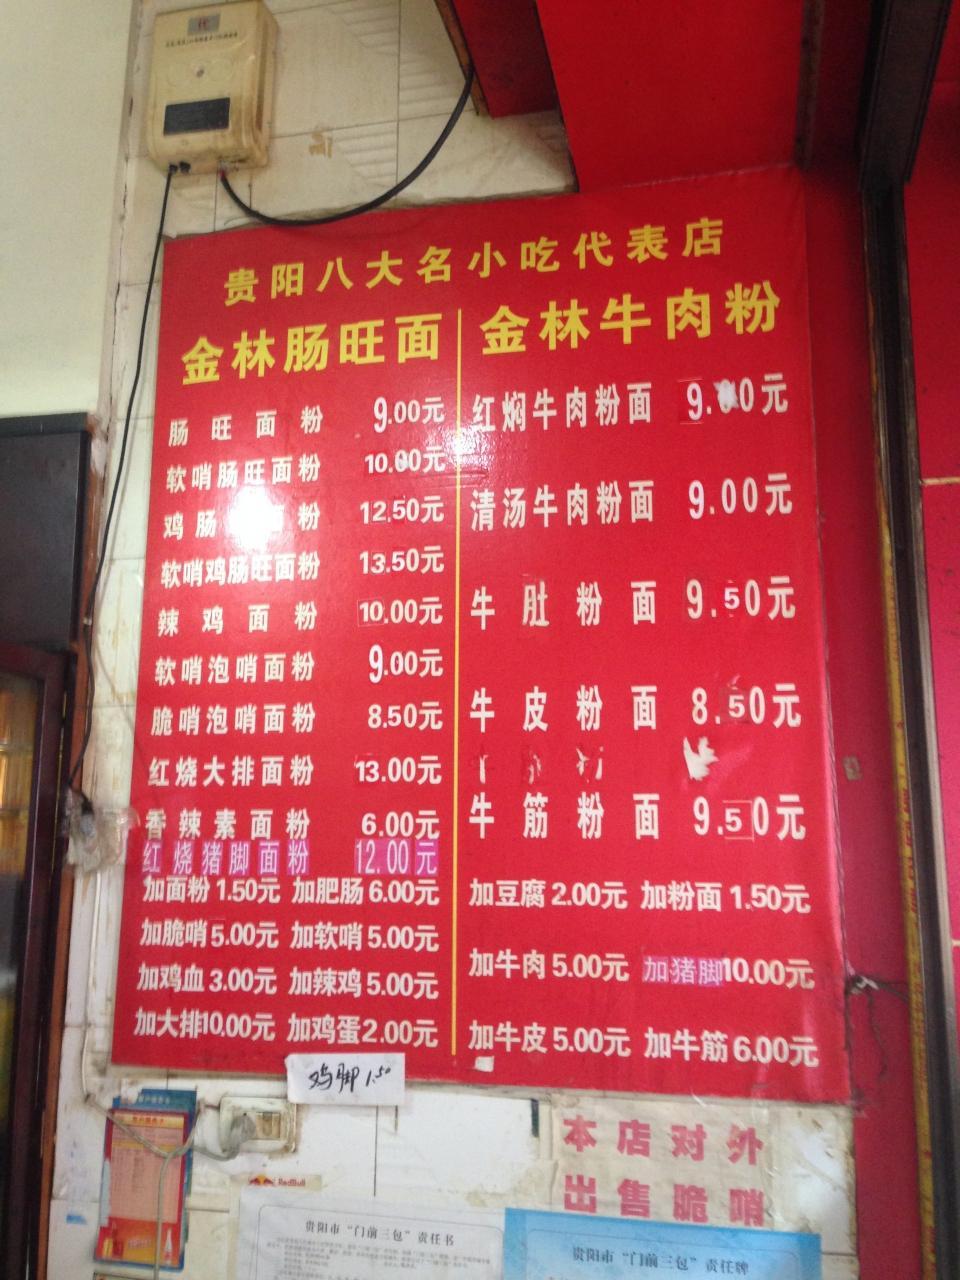 贵阳八大名小吃代表店
金林肠旺面
肠旺面粉 9.00元
软哨肠旺面粉 10.00元
鸡肠 面粉 12.50元
软哨鸡肠旺面粉 13.50元
辣鸡面粉 10.00元
软哨泡哨面粉 9.00元
脆哨泡哨面粉 8.50元
红烧大排面粉 13.00元
香辣素面粉 6.00元
红烧猪脚面粉 12.00元
加面粉1.50元 加肥肠6.00元
加脆哨5.00元 加软哨5.00元
加鸡血3.00元 加辣鸡5.00元
加大排10.00元 加鸡蛋2.00元
鸡脚1.50
金林牛肉粉
红焖牛肉粉面 9.00元
清汤牛肉粉面 9.00元
牛肚粉面 9.50元
牛皮粉面 8.50元
牛筋粉面 9.50元
加豆腐2.00元 加粉面1.50元
加牛肉5.00元 加猪脚10.00元
加牛皮5.00元 加牛筋6.00元
本店对外
出售脆哨
RedBull
贵阳市“门前三包”责任书
贵阳市“门前三包”责任牌